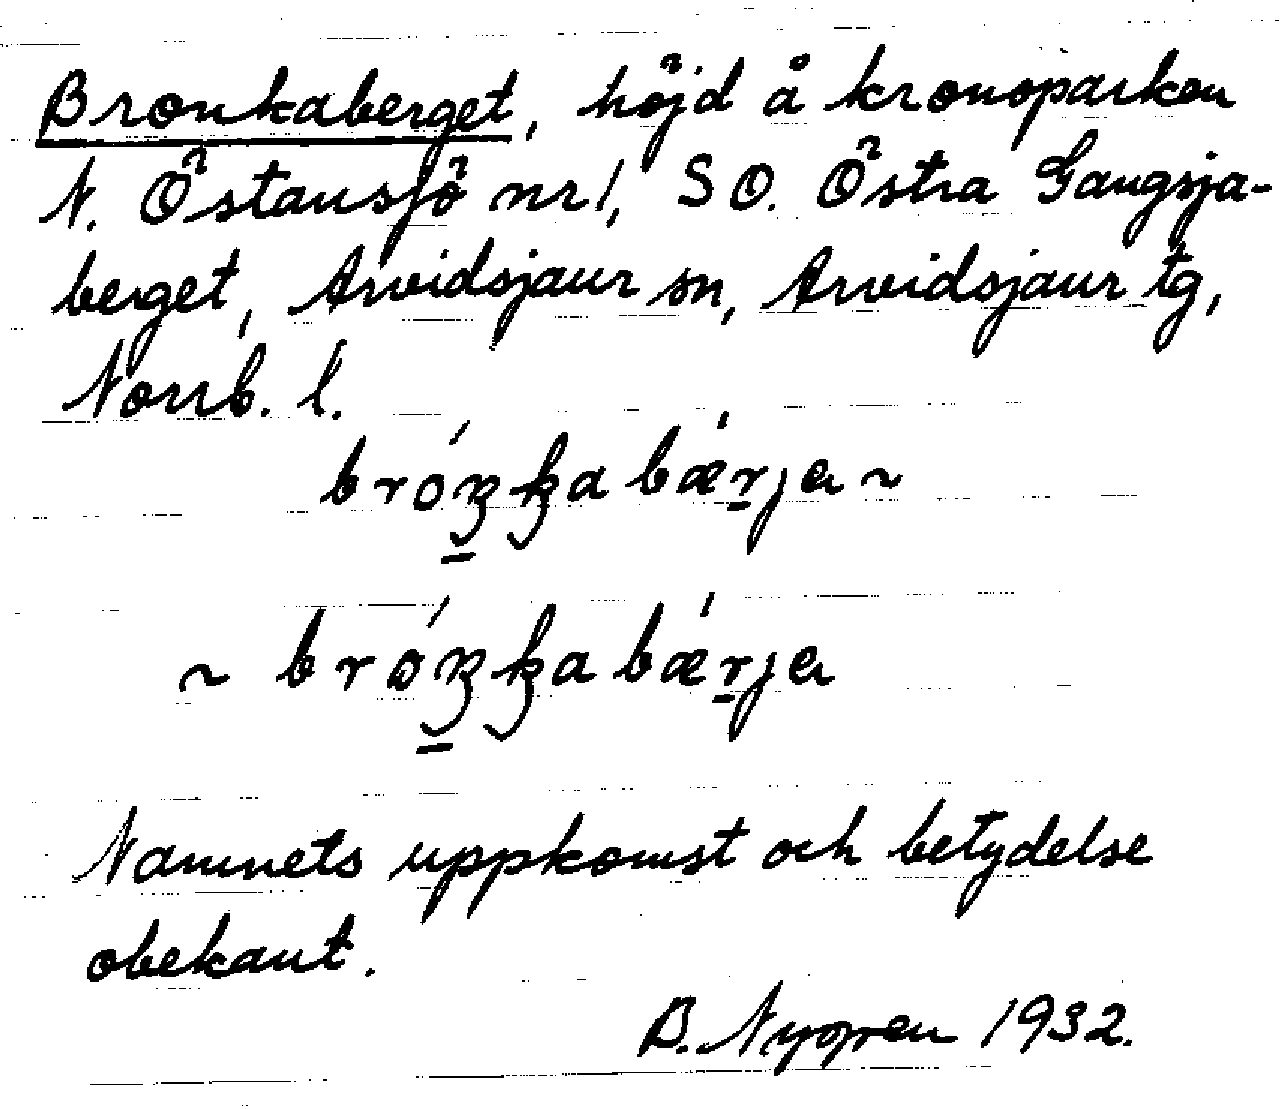 Bronkaberget, höjd å kronoparken
N. Östansjö nr 1, SO. Östra Gaugsja-
berget, Arvidsjaur sn, Arvidsjaur tg,
Norrb. l.
bárja ~
~ bárja
Namnets uppkomst och betydelse
obekant.
B. 1932.